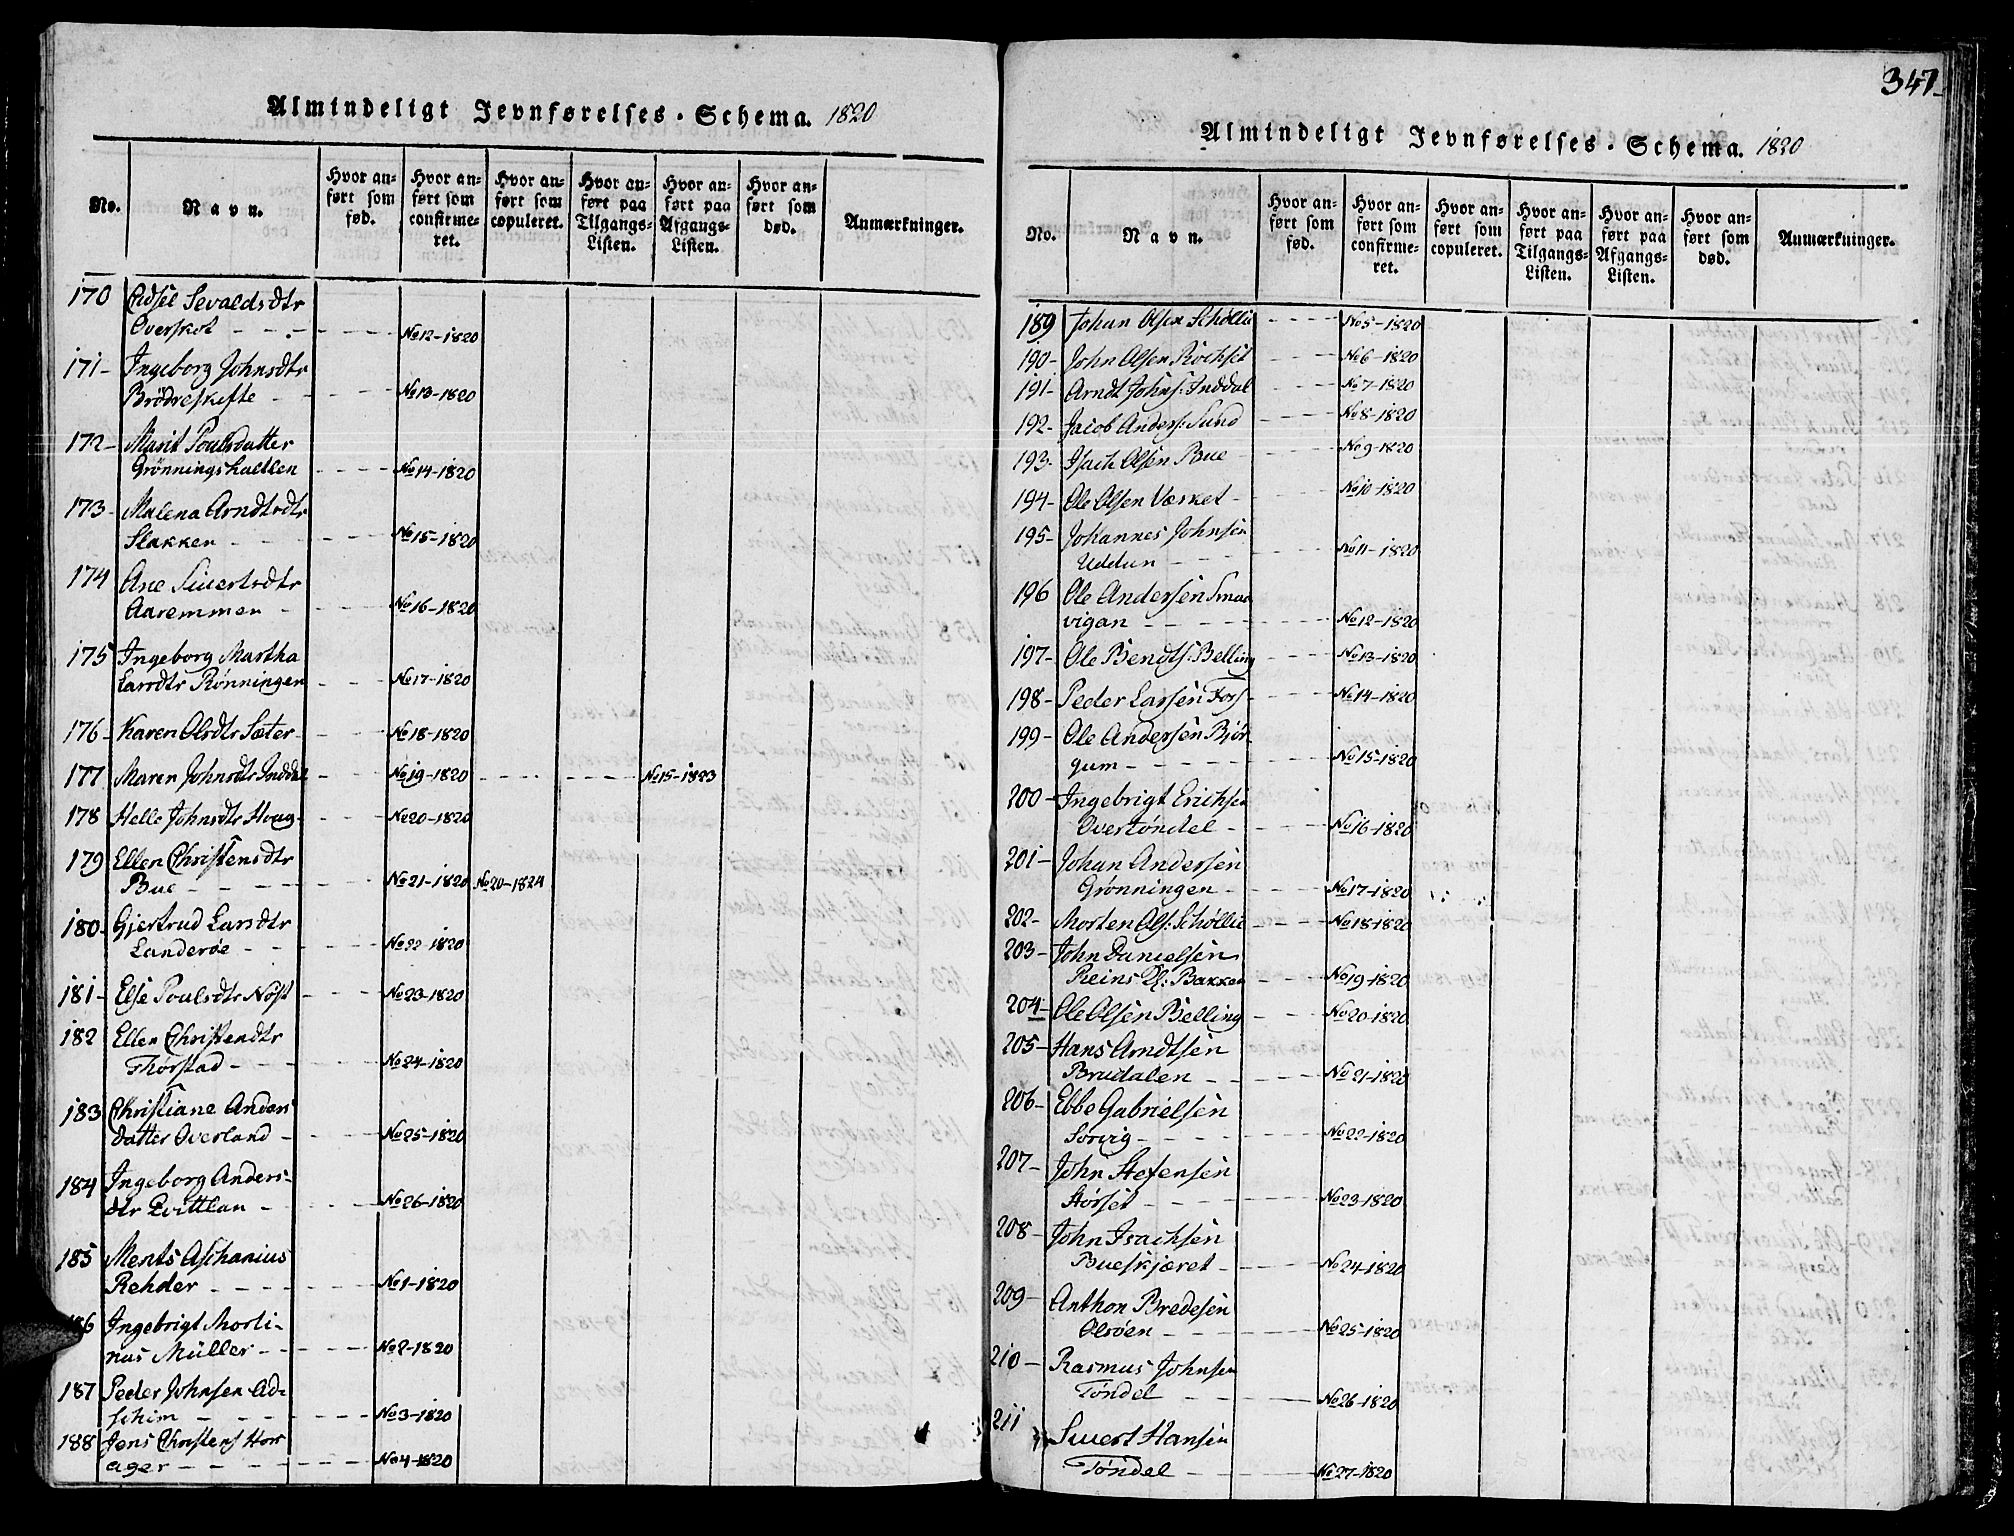 Almindeligt Jevnførelses-Schema. 1820
No.
Navn.
Hvor anført som fød.
Hvor anført som confirmeret.
Hvor anført som copuleret.
Hvor anført paa Tilgangs-Listen.
Hvor anført paa Afgangs-Listen.
Hvor anført som død.
Anmærkninger.
170 Edsel Sevaldsdtr
Overskot - - - - No 12-1820
171- Ingeborg Johnsdtr
Brödreskifte - - - - No 13-1820
172- Marit Poulsdatter
Grönningshaellen - - - - No 14-1820
173- Malena Arndtsdtr
Slakken - - - - No 15-1820
174 Ane Siuertsdtr
Aaremmen - - - - No 16-1820
175 Ingeborg Martha
Larsdtr Rönningen - - - No 17-1820
176- Karen Olsdtr Sæter - - - No 18-1820
177 Maren Johnsdtr Inddal - - - No 19-1820 - - - - No 15-1823
178 Helle Johnsdtr Houg - - - No 20-1820
179 Ellen Christensdtr
Bue - - - - No 21-1820 No 20-1824
180- Gjertrud Larsdtr
Landeröe - - - - No 22-1820
181- Else Poulsdtr Nöst - - - No 23-1820
182 Ellen Christendtr
Thörstad - - - - No 24-1820
183 Christiane Anders
datter Overland - - - - No 25-1820
184 Ingeborg Anders-
dtr - - - - No 26-1820
185 Ments Aschanius
Rehder - - - - No 1-1820
186 Ingebrigt Morti-
nus Müller - - - - No 2-1820
187 Peder Johnsen Ad-
schim - - - - No 3-1820
188 Jens Christens Hor
ager - - - - No 4-1820
347-
Almindeligt Jevnførelses-Schema. 1820
No.
Navn.
Hvor anført som fød.
Hvor anført som confirmeret.
Hvor anført som copuleret.
Hvor anført paa Tilgangs-Listen.
Hvor anført paa Afgangs-Listen.
Hvor anført som død.
Anmærkninger.
189 Johan Olsen Schöllie - - - - No 5-1820
190- John Olsen Rochset - - - - No 6-1820
191- Arndt Johns: Inddal - - - - No 7-1820
192- Jacob Anders: Sund - - - - No 8-1820
193- Isach Olsen Bue - - - - No 9-1820
194- Ole Olsen Værket - - - - No 10-1820
195- Johannes Johnsen
Udduun - - - - No 11-1820
196 Ole Andersen Smaa
vigan - - - - No 12-1820
197- Ole Bendts: Belling - - - No 13-1820
198- Peder Larsen Fors - - - No 14-1820
199- Ole Andersen Biör-
gum - - - - No 15-1820
200- Ingebrigt Erichsen
Overtöndel - - - - No 16-1820
201- Johan Andersen
Grönningen - - - - No 17-1820
202- Morten Ols: Schöllie - - - No 18-1820
203- John Danielsen
Reins Kl: Bakken - - - No 19-1820
204- Ole Olsen Belling - - - No 20-1820
205- Hans Arndtsen
Brudalen - - - - No 21-1820
206- Ebbe Gabrielsen
Sörvig - - - - No 22-1820
207- John Stefensen
Störset - - - - No 23-1820
208- John Isachsen
Bueskjæret - - - - No 24-1820
209- Anthon Bredesen
Olsöen - - - - No 25-1820
210- Rasmus Johnsen
Töndel - - - - No 26-1820
211 Siuert Hansen
Töndel - - - - No 27-1820